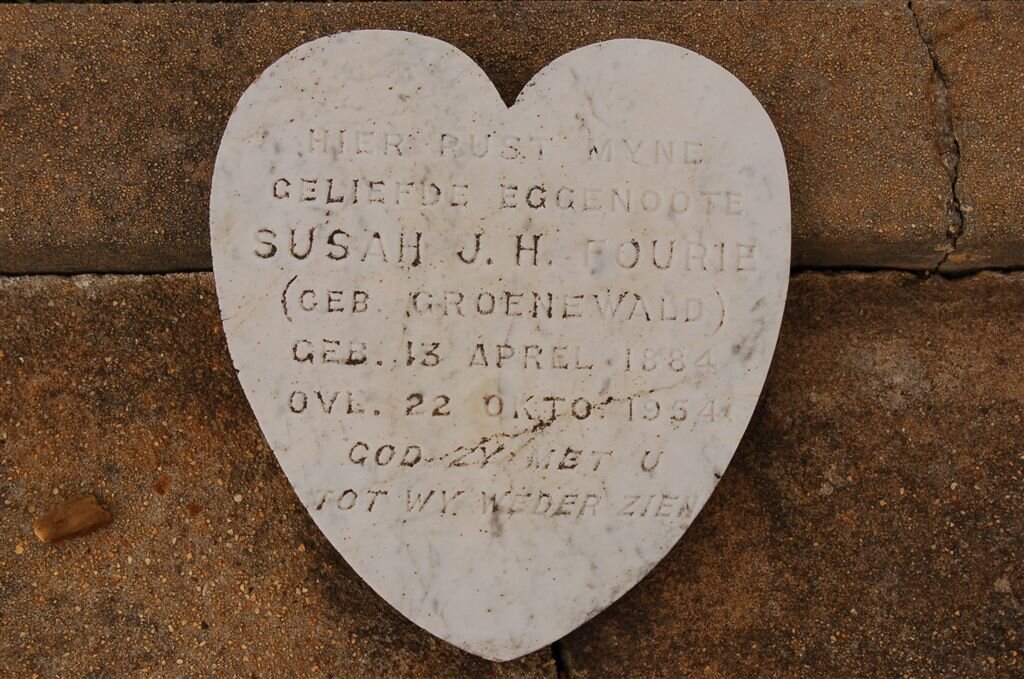 HIER RUST MYNE
GELIEFDE EGGENOOTE
SUSAH J. H. FOURIE
(GEB. GROENEWALD)
GEB. 13 APREL 1884
OVL. 22 OKTO. 1954
GOD ZY MET U
TOT WY WEDER ZIEN